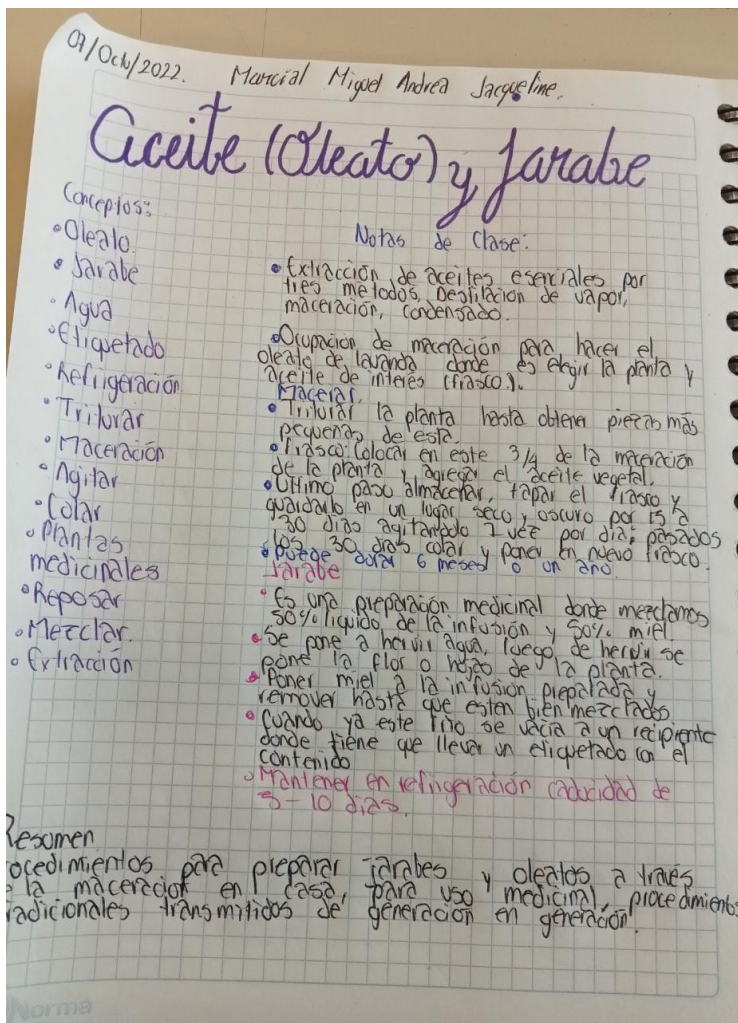 07/Octu/2022. Marcial Miguel Andrea Jacqueline.
Aceite (Oleato) y Jarabe
Conceptos:
• Oleato
• Jarabe
• Agua
• Etiquetado
• Refrigeración
• Triturar
• Maceración
• Agitar
• Colar
• Plantas
medicinales
• Reposar
• Mezclar.
• Extracción
Notas de Clase:
• Extracción de aceites esenciales por
tres metodos, Destilacion de vapor,
maceración, condensado.
• Ocupacion de maceración para hacer el
oleato de lavanda donde es elegir la planta y
aceite de interes (frasco).
Macerar.
• Triturar la planta hasta obtener piezas más
pequeñas de esta.
• frasco: Colocar en este 3/4 de la maceración
de la planta y agregar el aceite vegetal.
• Ultimo paso almacenar, tapar el frasco y
guardarlo en un lugar seco y oscuro por 15 a
30 dias agitandolo 1 vez por dia; pasados
los 30 dias colar y poner en nuevo frasco.
• puede durar 6 meses o un año.
Jarabe
• Es una preparación medicinal donde mezclamos
50% liquido de la infusión y 50% miel.
• Se pone a hervir agua, luego de hervir se
pone la flor o hojas de la planta.
• Poner miel a la infusión preparada y
remover hasta que esten bien mezclados
• Cuando ya este frio se vacia a un recipiente
donde tiene que llevar un etiquetado con el
contenido
• Mantener en refrigeración caducidad de
5-10 dias.
Resumen
ocedimientos para preparar jarabes y oleatos a través
la maceracion en casa, para uso medicinal, procedimiento
adicionales transmitidos de generación en generación.
Norma